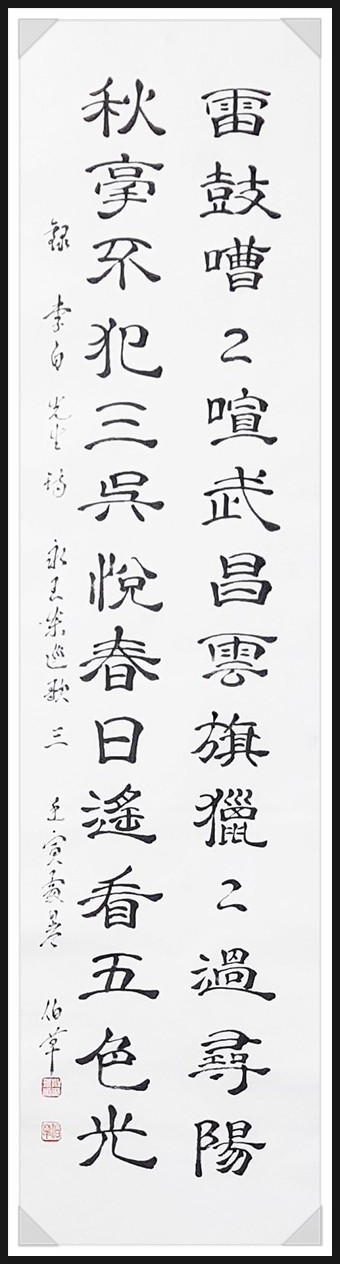 雷鼓嘈〻喧武昌雲旗獵〻過尋陽
秋毫不犯三吳悅春日遙看五色光
錄 李白先生詩 永王東巡歌三 壬寅夏暑 伯華